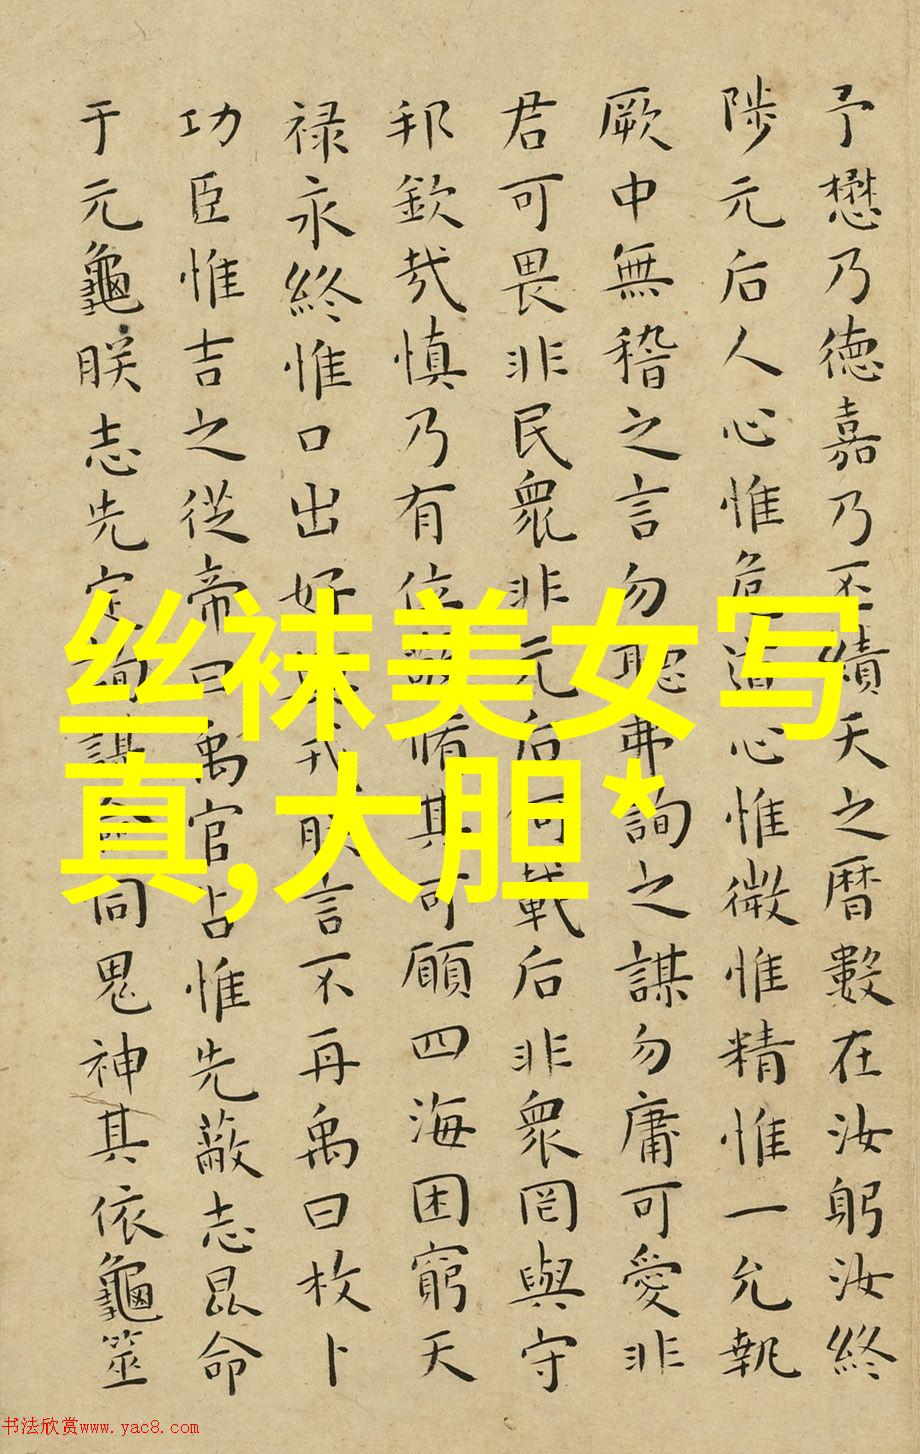 予懋乃德嘉乃丕績天之曆數在汝躬汝終
陟元后人心惟危道心惟微惟精惟一允執
厥中無稽之言勿聽弗詢之謀勿庸可愛非
君可畏非民衆非元后何戴后非衆罔與守
邦欽哉慎乃有位敬脩其可願四海困窮天
禄永終惟口出好戎朕言不再禹曰枚卜
功臣惟吉之從帝曰禹官占惟先蔽志昆命
于元龜朕志先定詢謀同鬼神其依龜筮
丝袜美女写
真,大胆*
书法欣赏www.yac8.com